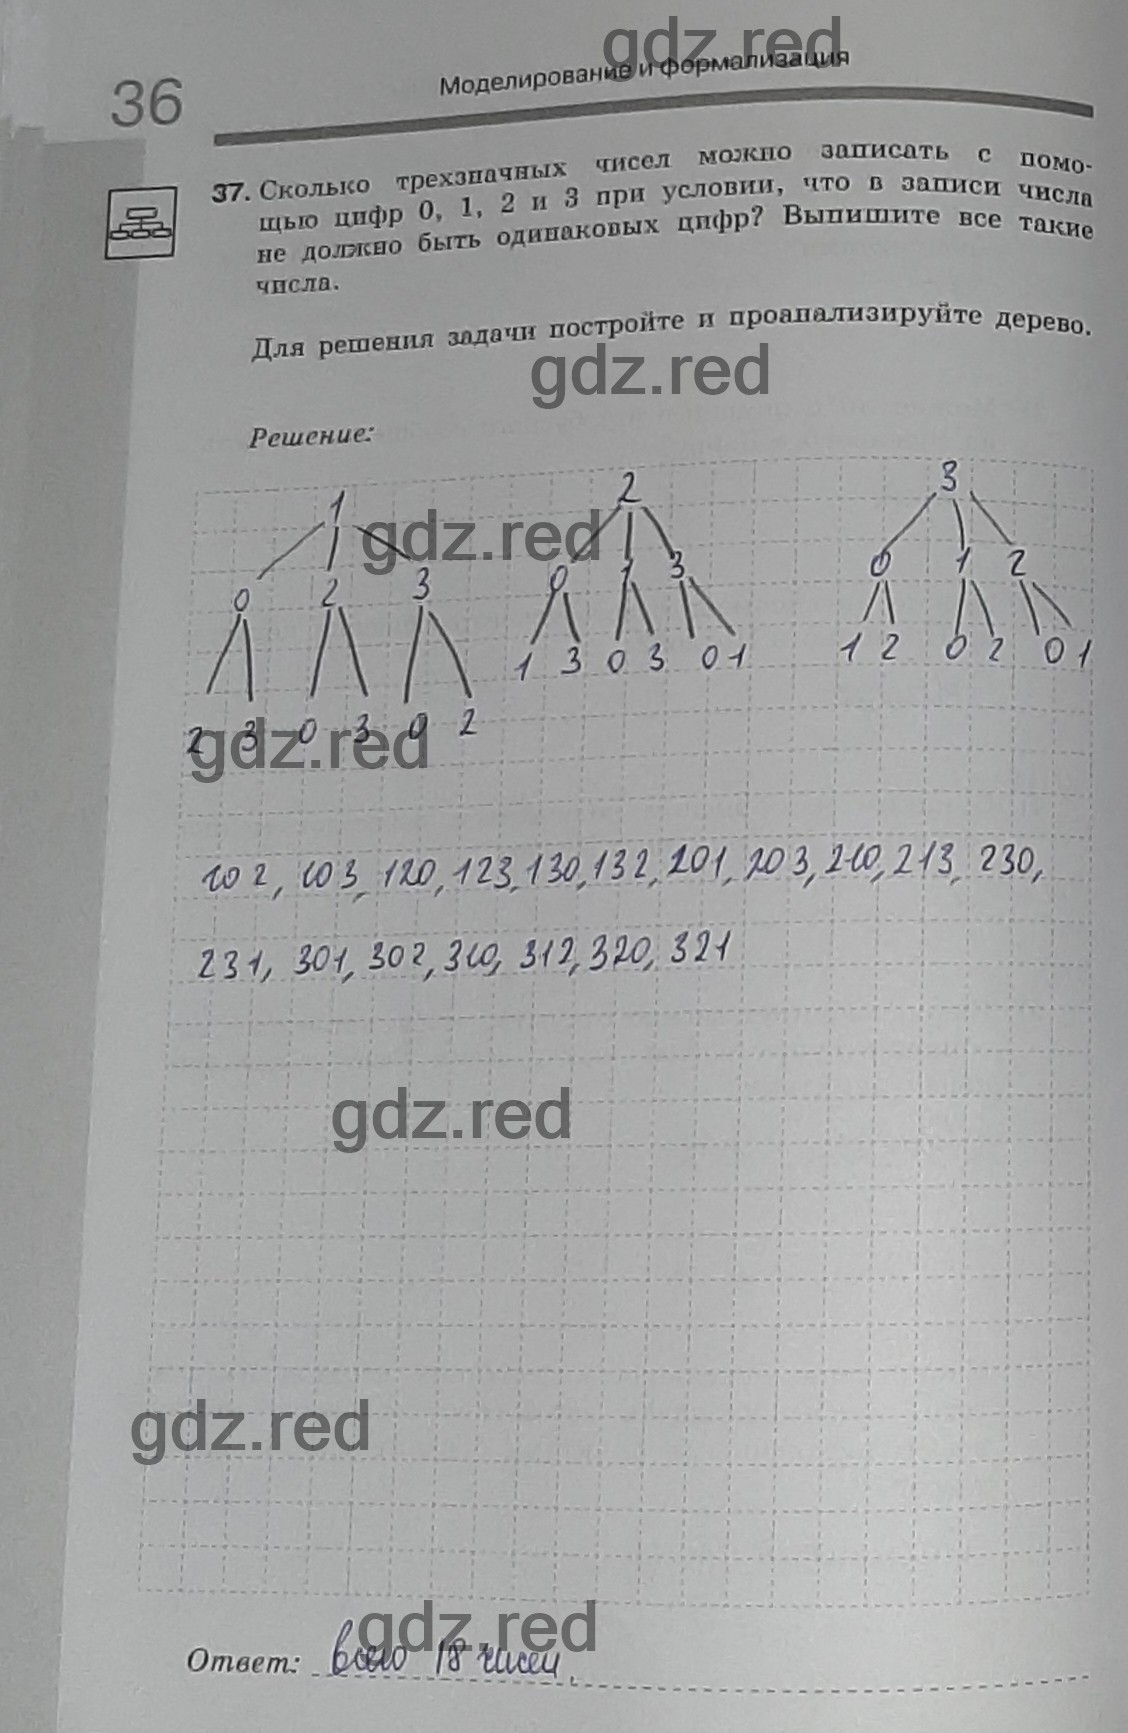 gdz.red
36
Моделирование и формализация
37. Сколько трехзначных чисел можно записать с помо-
щью цифр 0, 1, 2 и 3 при условии, что в записи числа
не должно быть одинаковых цифр? Выпишите все такие
числа.
Для решения задачи постройте и проанализируйте дерево.
gdz.red
Решение:
1 2 3
gdz.red
0 2 3 0 1 3 0 1 2
2 3 0 3 0 2 1 3 0 3 0 1 1 2 0 2 0 1
gdz.red
102, 103, 120, 123, 130, 132, 201, 203, 210, 213, 230,
231, 301, 302, 310, 312, 320, 321
gdz.red
gdz.red
gdz.red
Ответ: всего 18 чисел.